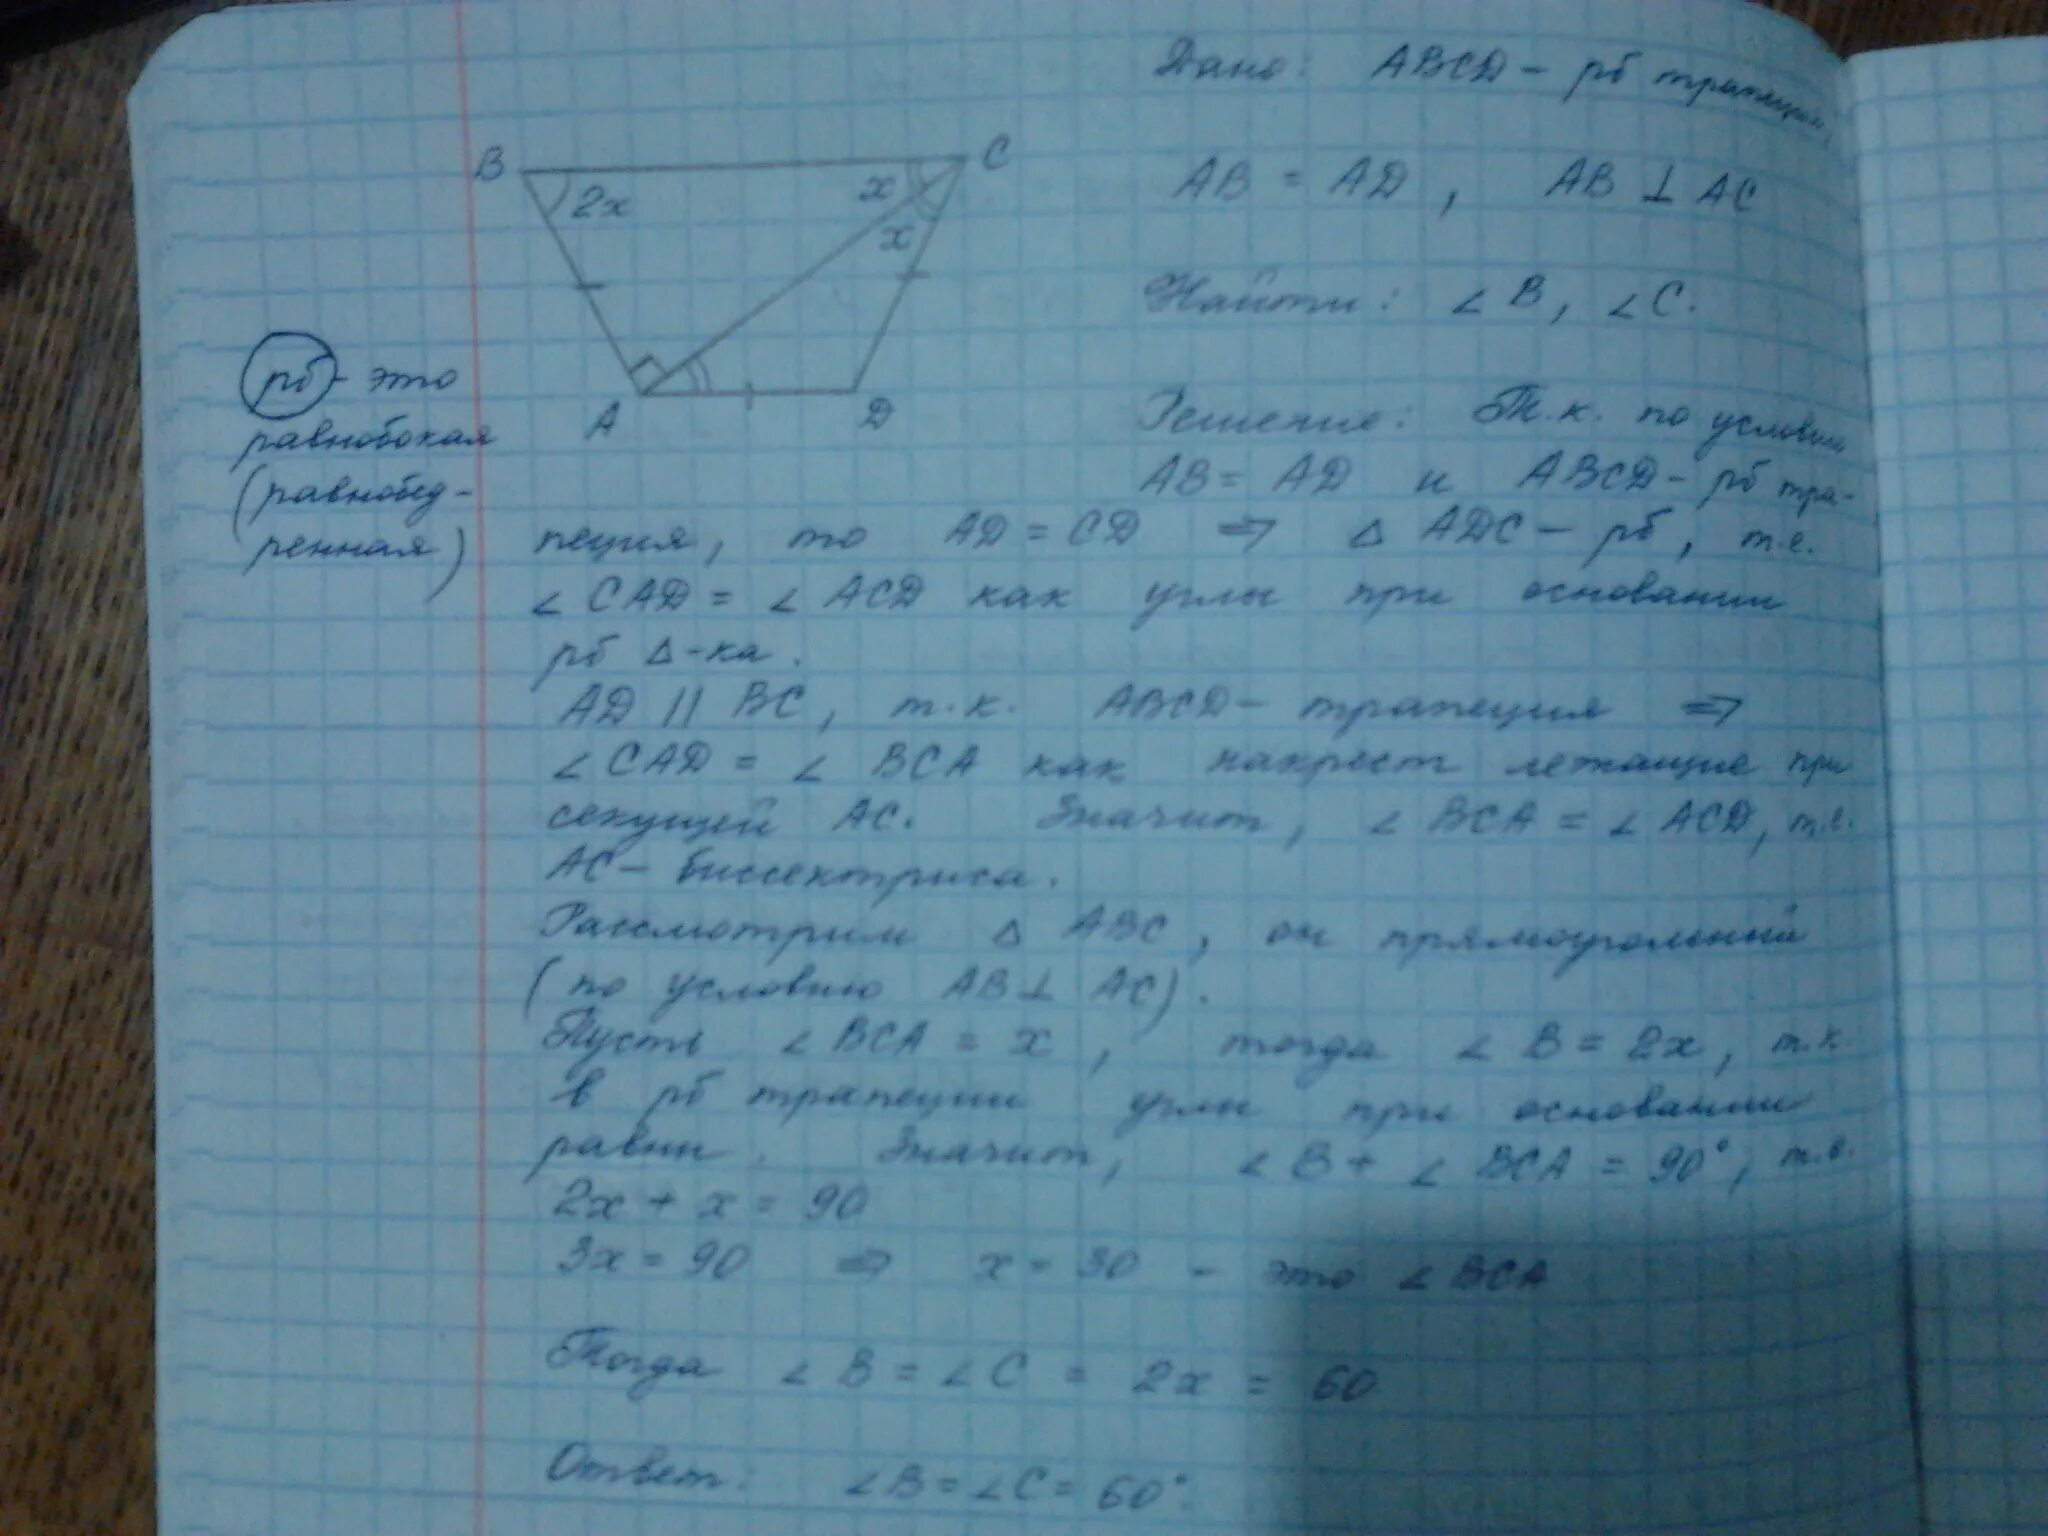 Дано: ABCD – рб трапеция,
B
C
2x
x
x
A
D
AB = AD, AB ⊥ AC
Найти: ∠B, ∠C.
рб - это
равнобокая
(равнобед-
ренная)
Решение: Т.к. по условию
AB = AD и ABCD – рб тра-
пеция, то AD = CD ⇒ △ ADC – рб, т.е.
∠CAD = ∠ACD как углы при основании
рб △-ка.
AD || BC, т.к. ABCD – трапеция ⇒
∠CAD = ∠BCA как накрест лежащие при
секущей AC. Значит, ∠BCA = ∠ACD, т.е.
AC – биссектриса.
Рассмотрим △ ABC, он прямоугольный
(по условию AB ⊥ AC).
Пусть ∠BCA = x, тогда ∠B = 2x, т.к.
в рб трапеции углы при основании
равны. Значит, ∠B + ∠BCA = 90°, т.е.
2x + x = 90
3x = 90 ⇒ x = 30 – это ∠BCA
Тогда ∠B = ∠C = 2x = 60
Ответ: ∠B = ∠C = 60°.